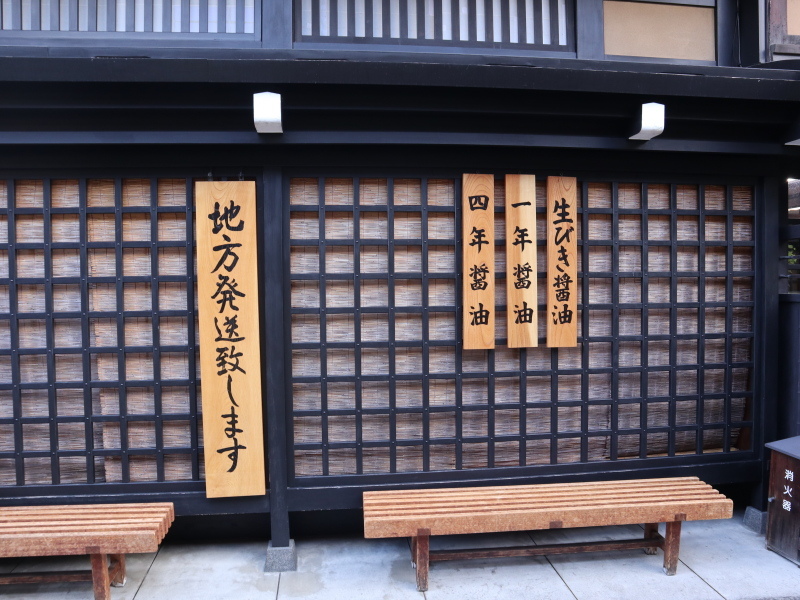 生びき醤油
一年醤油
四年醤油
地方発送致します
消火器